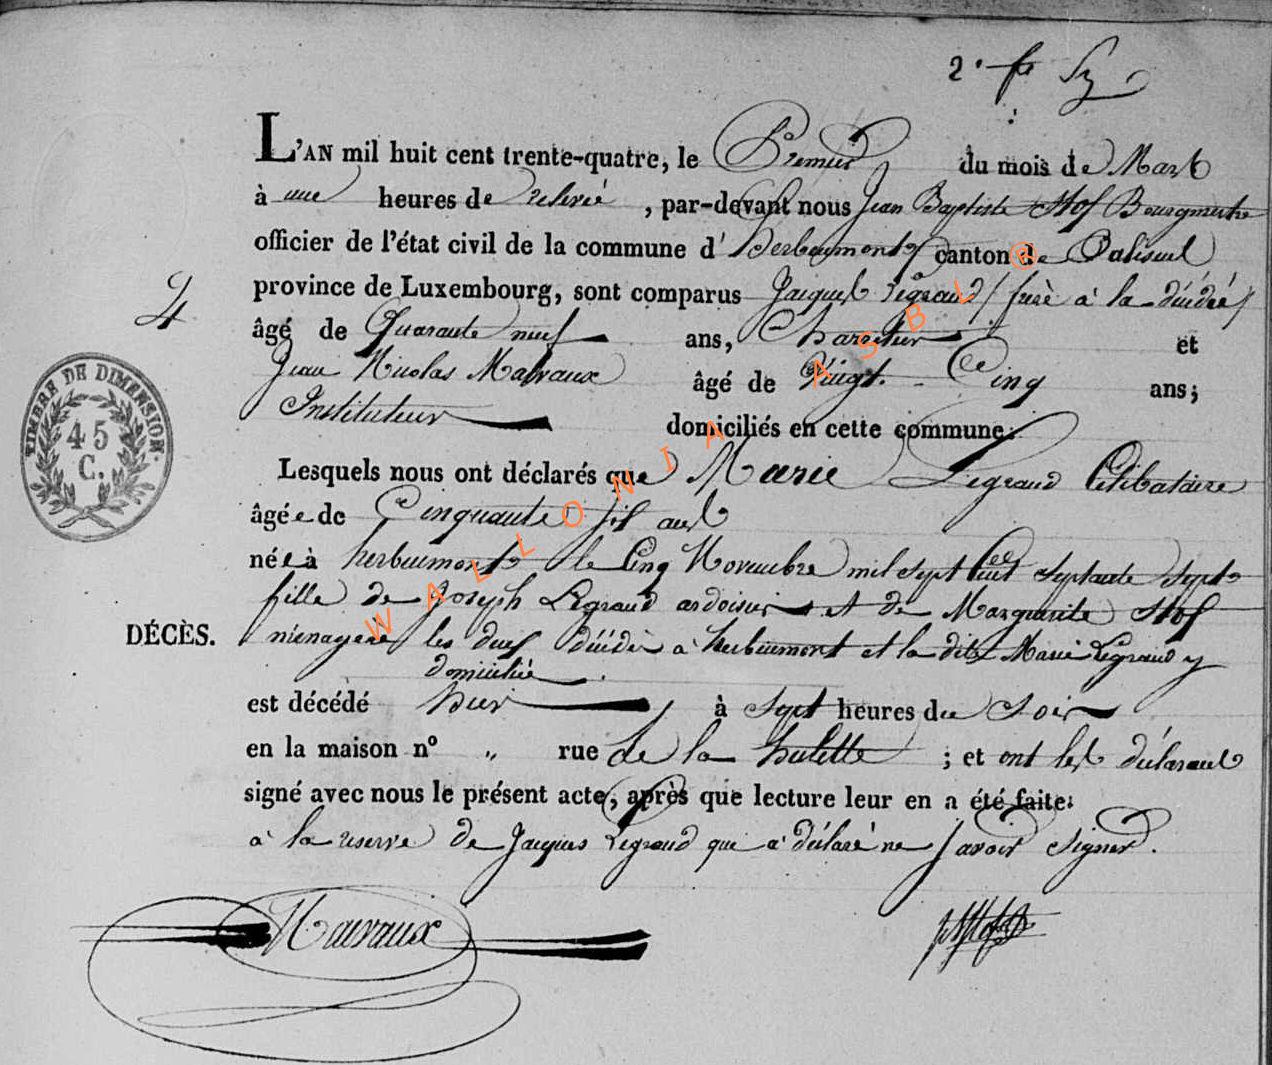 2e
L'AN mil huit cent trente-quatre, le Premier du mois de Mars
à une heures de relevée, par-devant nous Jean Baptiste Stof Bourgmestre
officier de l'état civil de la commune d'herbeumont canton de Paliseul
province de Luxembourg, sont comparus Jacques Legrand / frère à la décédée /
4
âgé de Quarante neuf ans, et
Jean Nicolas Malvaux âgé de Vingt-Cinq ans;
Instituteur domiciliés en cette commune:
Lesquels nous ont déclarés que Marie Legrand Célibataire
âgée de Cinquante six ans
née à herbeumont le Cinq Novembre mil sept Cent Septante Sept
fille de Joseph Legrand ardoisier et de Marguerite Stof
ménagère les deux décédés à herbeumont et la dite Marie Legrand y
domiciliée
est décédé hier à sept heures du soir
en la maison n° " rue de la hulette ; et ont les déclarant
signé avec nous le présent acte, après que lecture leur en a été faite:
à la reserve de Jacques Legrand qui a déclaré ne savoir signer.
DÉCÈS.
TIMBRE DE DIMENSION.
45
C.
WALLONIA ASBL ®
Malvaux